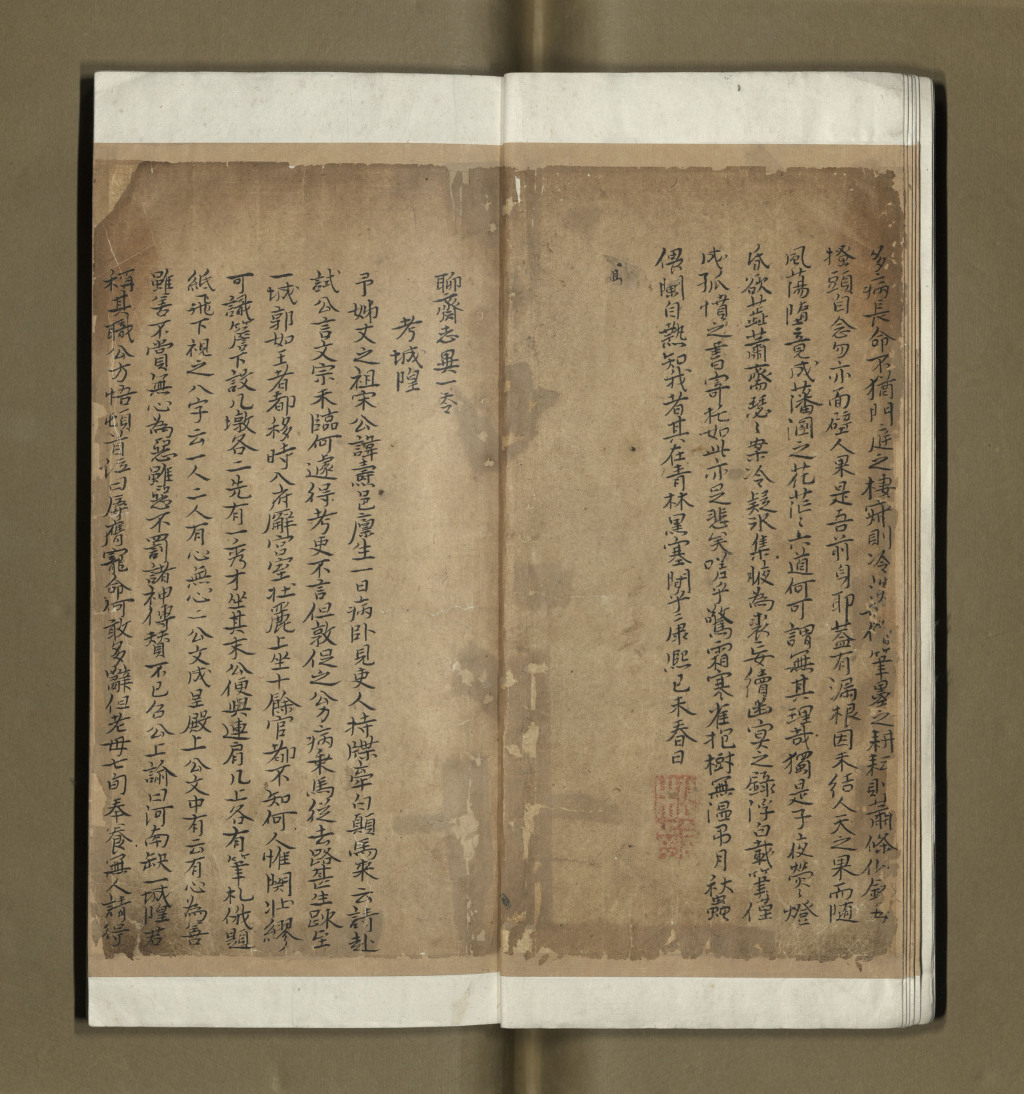 多病長命不猶門庭之棲寂則冷淡如僧筆墨之耕耘則蕭條似鉢每
搔頭自念勿亦面壁人果是吾前身耶蓋有漏根因未結人天之果而隨
風蕩墮竟成藩溷之花茫〻六道何可謂無其理哉獨是子夜熒〻燈
昏欲蕊蕭齋瑟〻案冷疑冰集腋為裘妄續幽冥之錄浮白載筆僅
成孤憤之書寄托如此亦足悲矣嗟乎驚霜寒雀抱樹無溫吊月秋蟲
偎闌自熱知我者其在青林黑塞間乎康熙己未春日
聊齋志異一卷
考城隍
予姊丈之祖宋公諱燾邑廩生一日病臥見吏人持牒牽白顛馬來云請赴
試公言文宗未臨何遽得考吏不言但敦促之公力病乘馬從去路甚生疎至
一城郭如王者都移時入府廨宮室壯麗上坐十餘官都不知何人惟關壯繆
可識簷下設几墩各二先有一秀才坐其末公便與連肩几上各有筆札俄題
紙飛下視之八字云一人二人有心無心二公文成呈殿上公文中有云有心為善
雖善不賞無心為惡雖惡不罰諸神傳贊不已召公上諭曰河南缺一城隍君
稱其職公方悟頓首泣曰辱膺寵命何敢多辭但老母七旬奉養無人請得